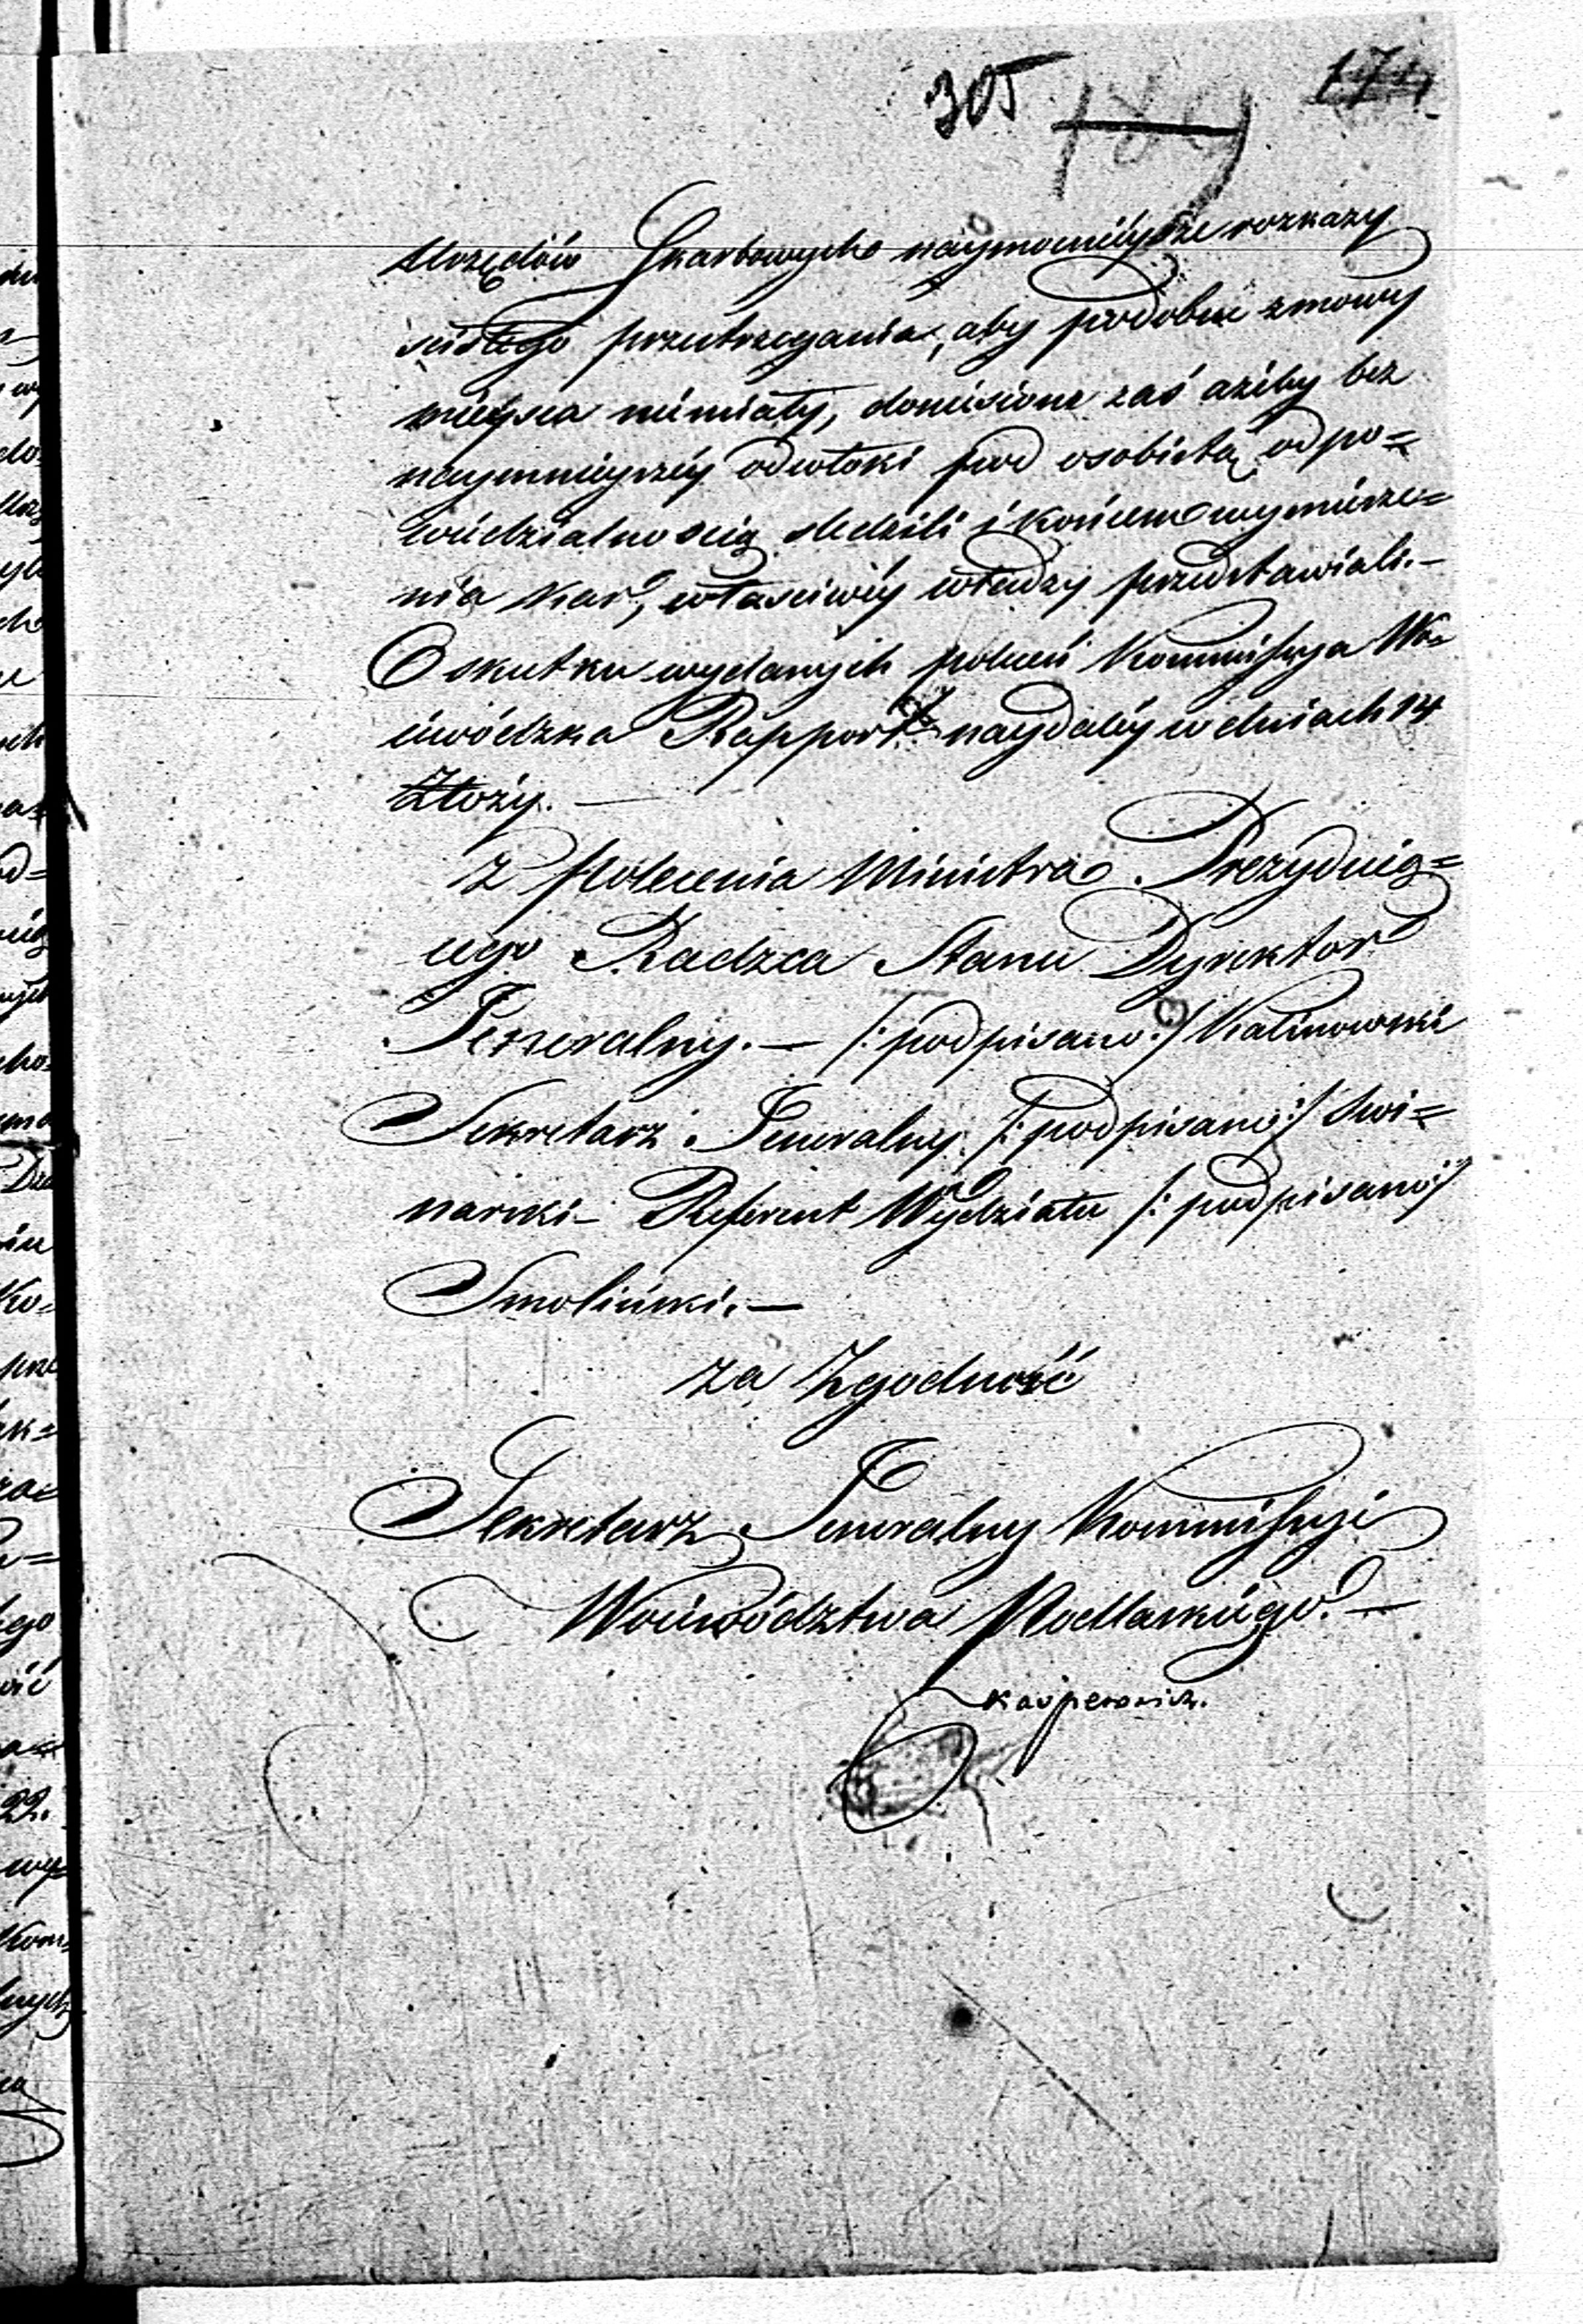 305 189 174
Urzędów Skarbowych naymocnieysze rozkazy
ścisłego przestrzegania, aby podobne zmowy
mieysca niemiały, doniesione zaś ażeby bez
naymnieyszey odwłoki pod osobistą odpo=
wiedzialnością śledzili i końcem wymierze=
nia kar, właściwey władzy przedstawiali.—
O skutku wydanych poleceń Kommissya Wo=
iewódzka Rapport naydaley w dniach 14
złoży.—
Z polecenia Ministra Prezyduią=
cego Radzca Stanu Dyrektor
Jeneralny.— /:podpisano:/ Kalinowski
Sekretarz Jeneralny /:podpisano:/ Świ=
narski— Referent Wydziału /:podpisano:/
Smoliński.—
Za Zgodność
Sekretarz Jeneralny Kommissyi
Woiewództwa Podlaskiego.—
Kasperowicz.